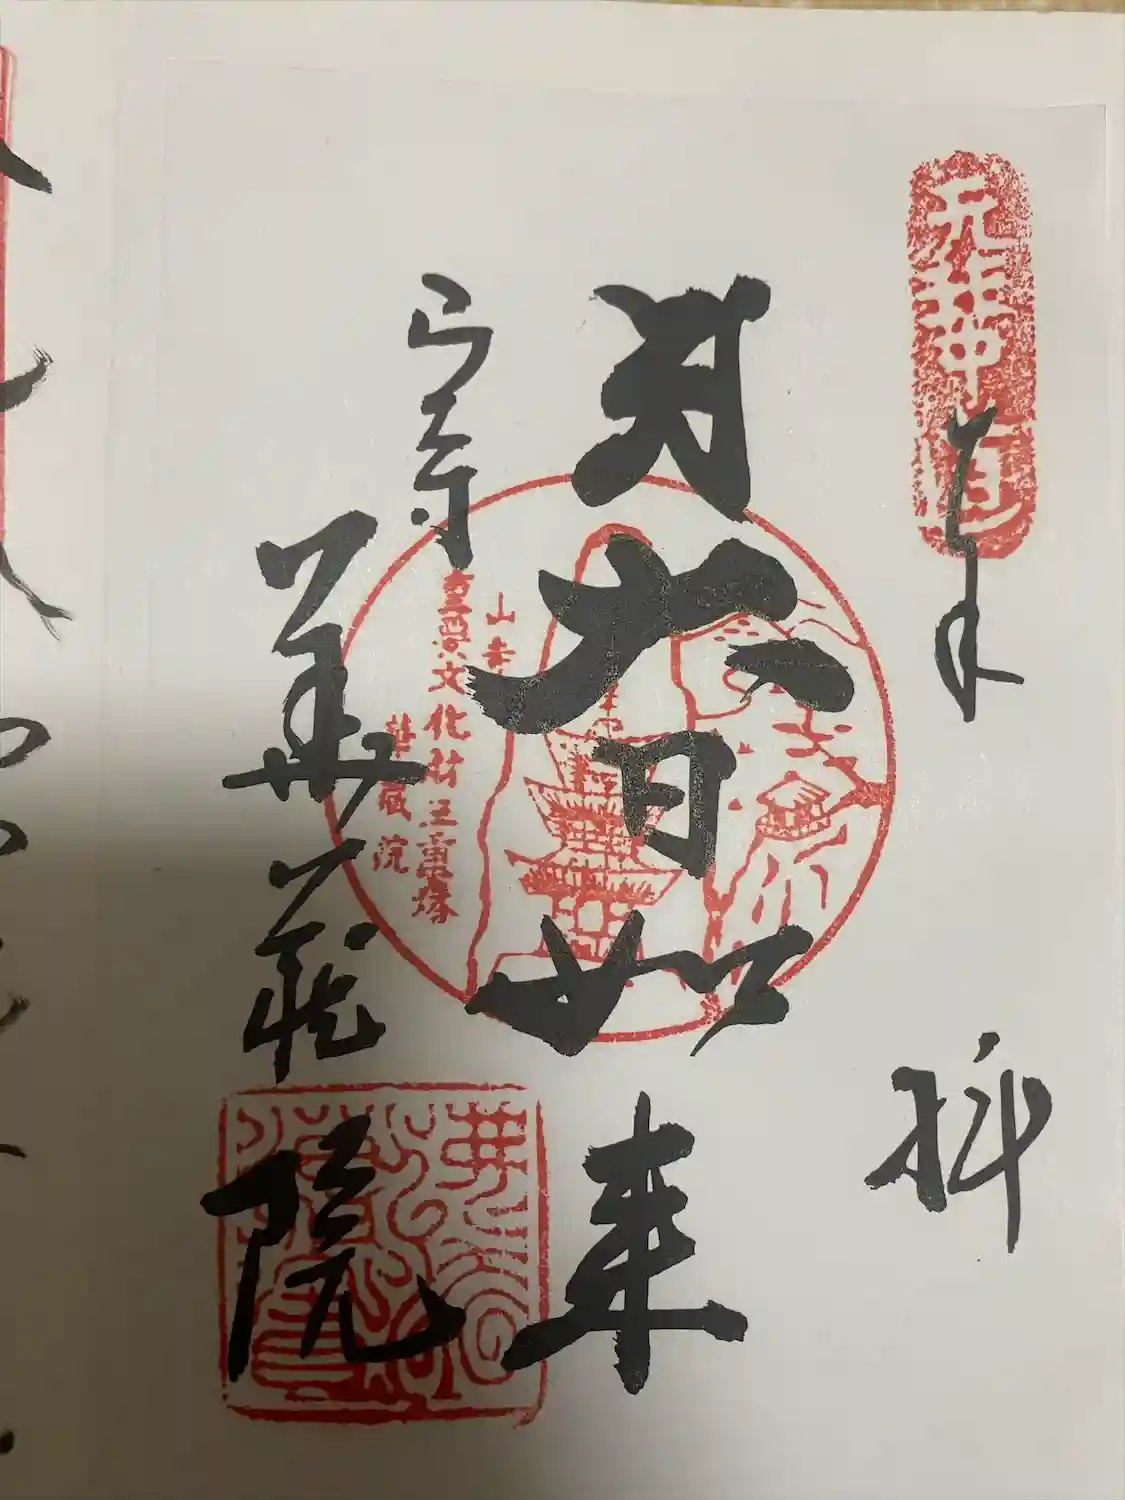 无非中道
奉拝
大日如来
山寺
重要文化財三重塔
華蔵院
山寺
華蔵院